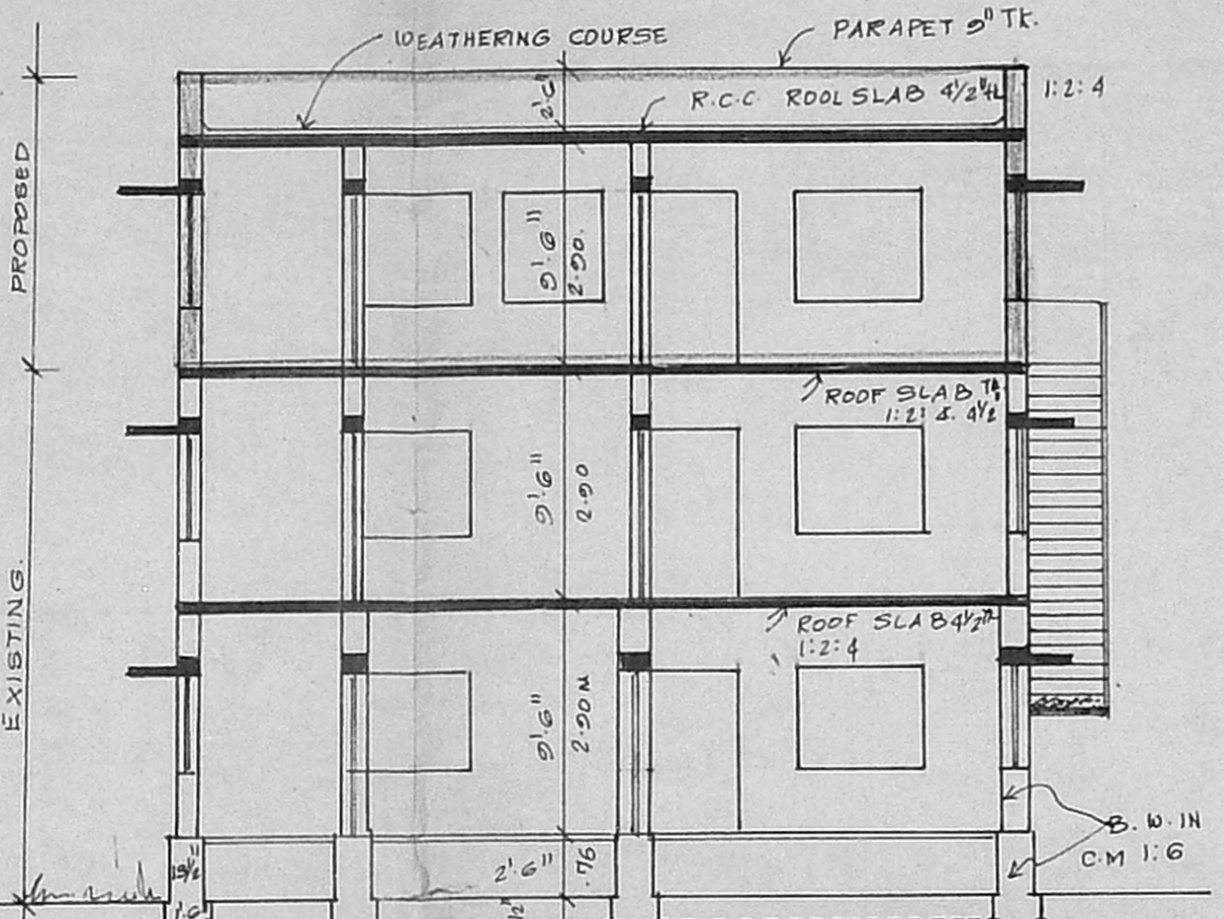 WEATHERING COURSE
PARAPET 9" TK.
R.C.C. ROOL SLAB 4 1/2"
1:2:4
PROPOSED
9'.6"
2.90.
ROOF SLAB TK
1:2: 4. 4 1/2
9'.6"
2.90
EXISTING.
ROOF SLAB 4 1/2"
1:2:4
9'.6"
2.90 M
B.W. IN
C.M 1:6
2'.6"
.76
13 1/2"
1'.6